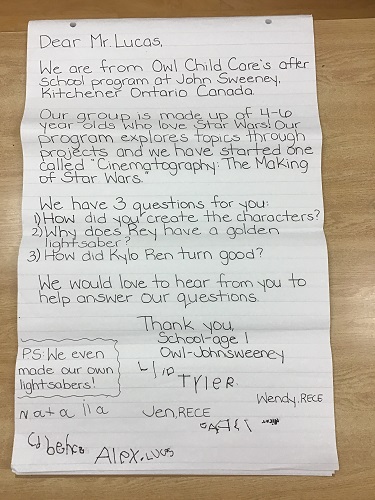 Dear Mr. Lucas,
We are from Owl Child Care's after
school program at John Sweeney,
Kitchener Ontario Canada.
Our group is made up of 4-6
year olds who love Star Wars! Our
program explores topics through
projects and we have started one
called "Cinematography: The Making
of Star Wars."
We have 3 questions for you:
1) How did you create the characters?
2) Why does Rey have a golden
lightsaber?
3) How did Kylo Ren turn good?
We would love to hear from you to
help answer our questions.
Thank you,
School-age 1
Owl-Johnsweeney
P.S: We even
made our own
lightsabers!
Tyler
Wendy, RECE
Natalia
Jen, RECE
Alex, Lucas